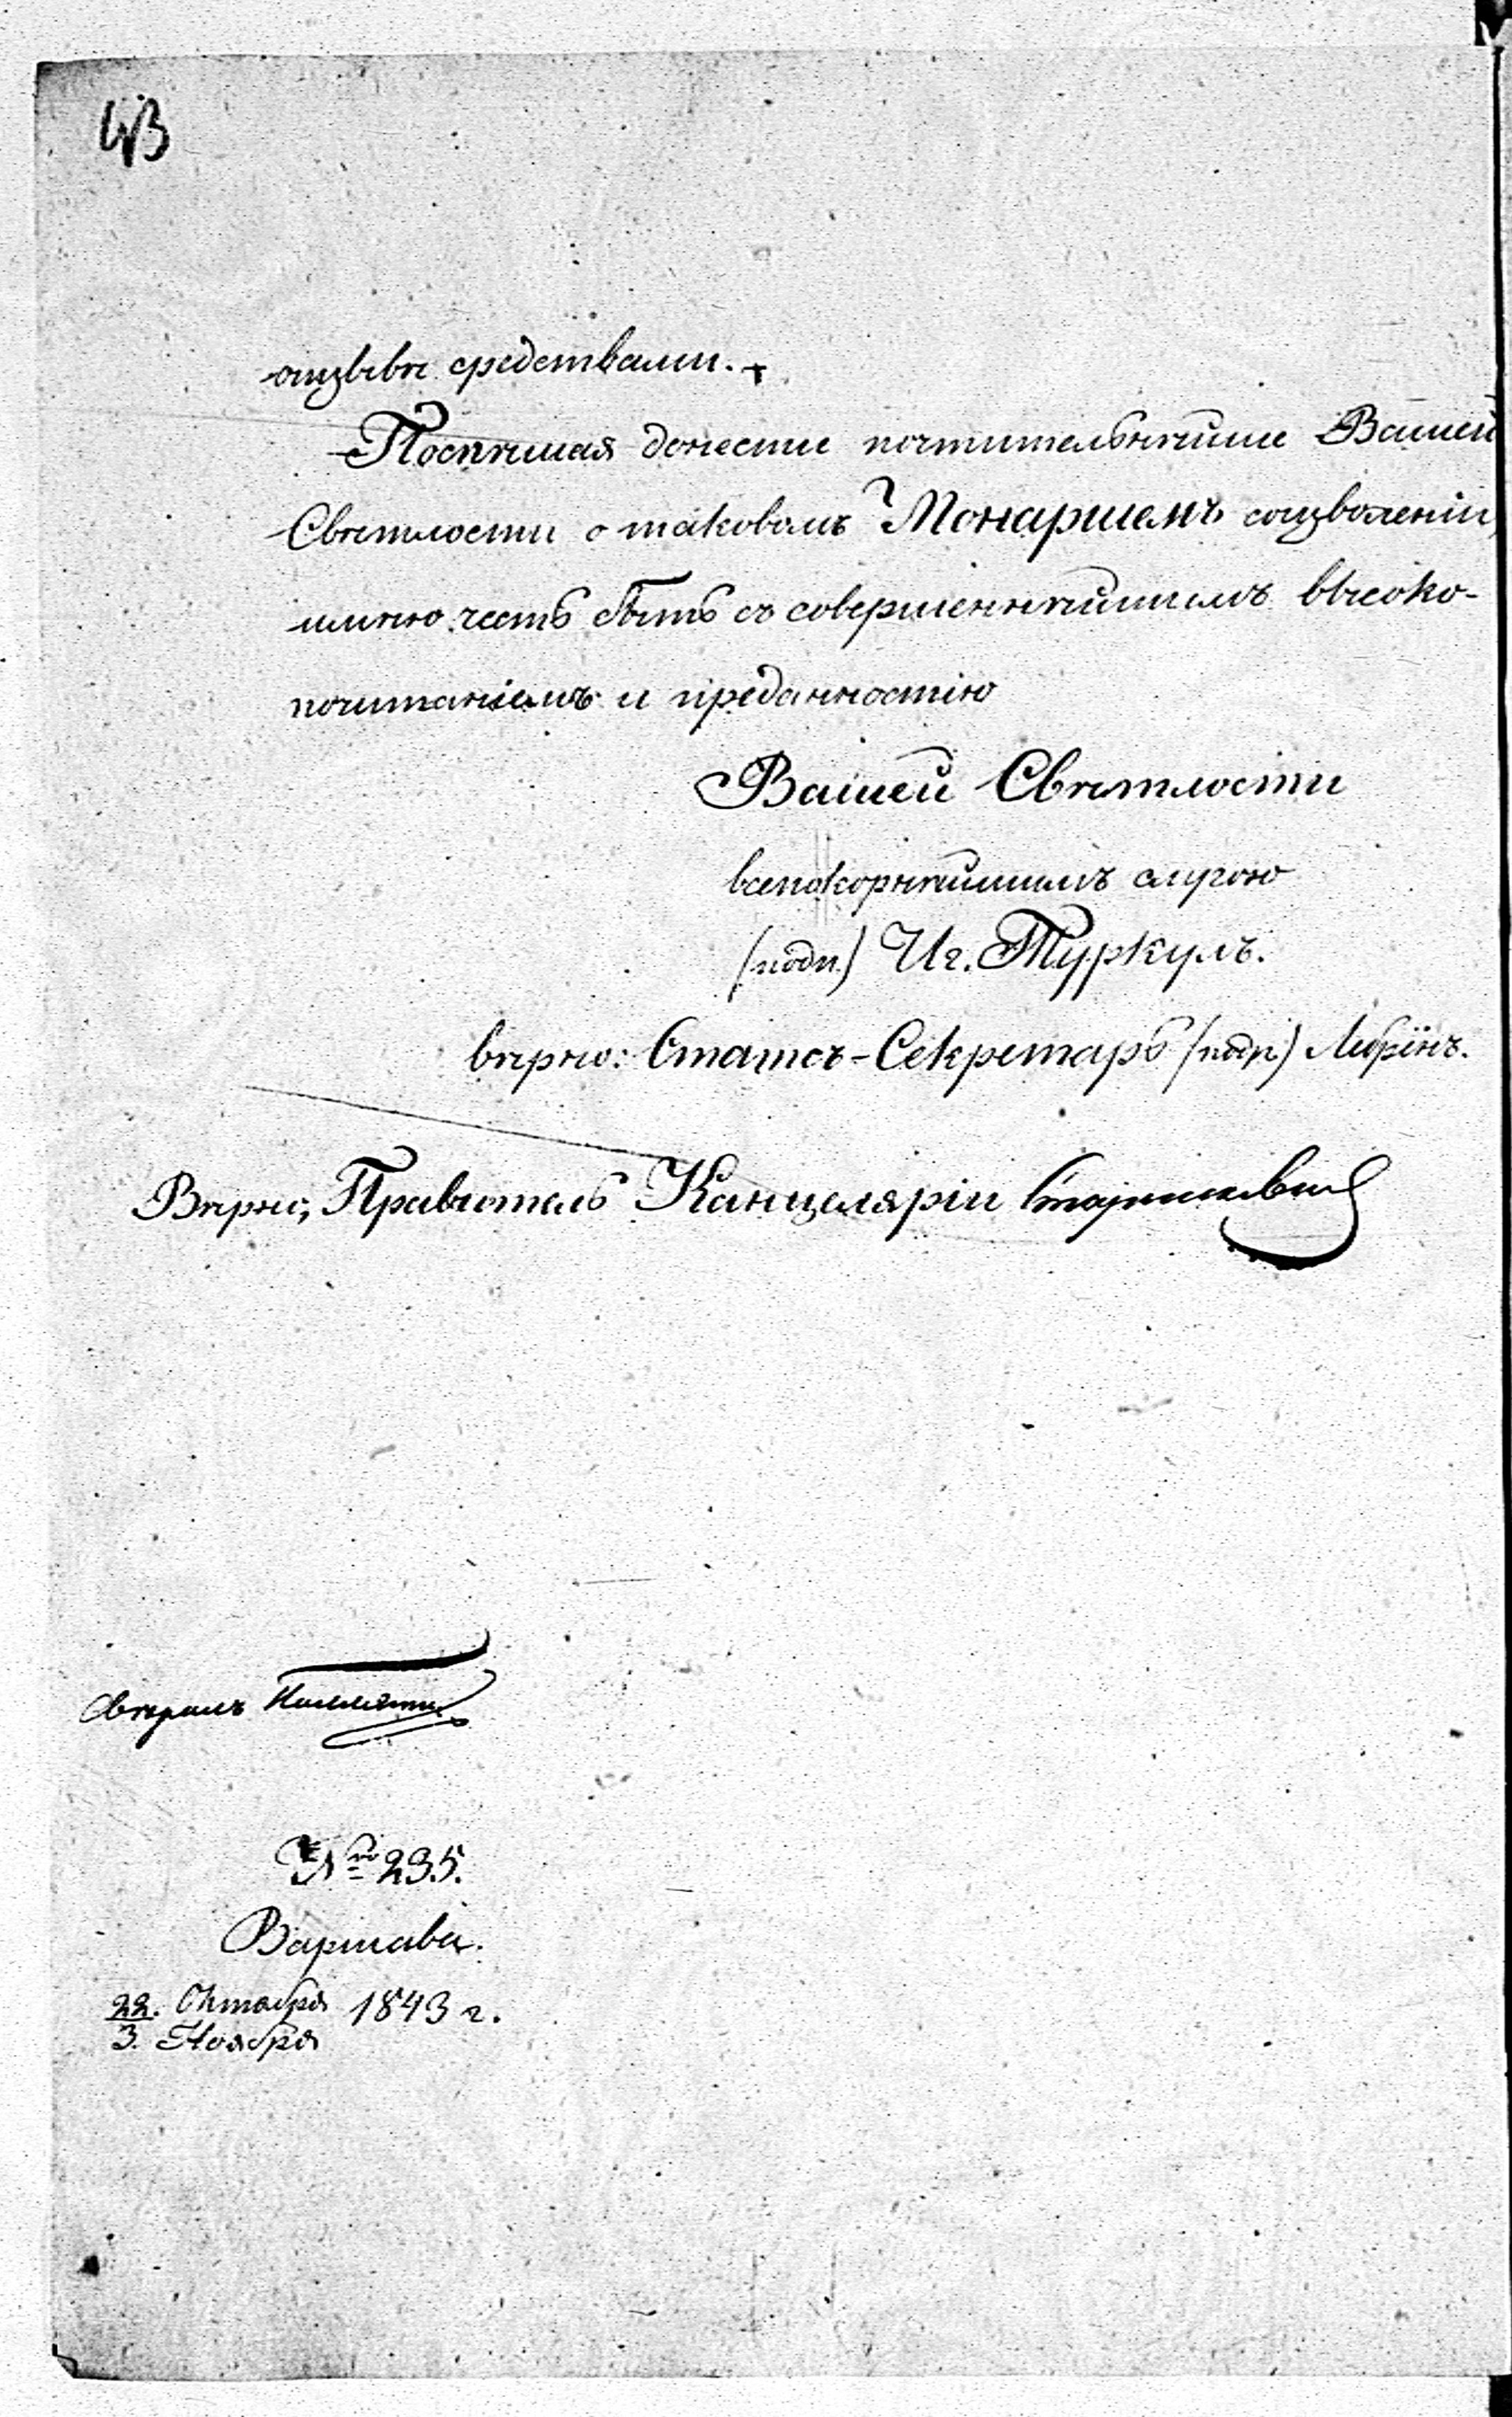 43
отзывѣ средствами.
Поспѣшая донести почтительнѣйше Вашей
Свѣтлости о таковомъ Монаршемъ соизволеніи,
имѣю честь быть съ совершеннѣйшимъ высоко-
почитаніемъ и преданностію
Вашей Свѣтлости
всепокорнѣйшимъ слугою
(подп.) Иг. Туркулъ.
вѣрно: Статсъ-Секретарь (подп.)
Вѣрно: Правитель Канцеляріи
Свѣрялъ
№ 235.
Варшава.
22. Октября 1843 г.
3. Ноября